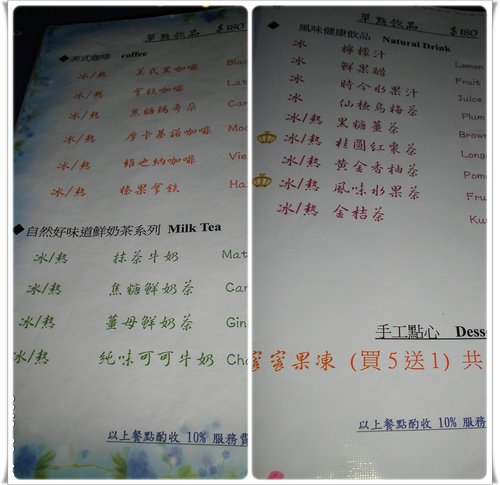 單點飲品 $180
◆美式咖啡 coffee
冰/熱 美式黑咖啡 Blac
冰/熱 拿鐵咖啡 Lat
冰/熱 焦糖瑪奇朵 Car
冰/熱 摩卡基諾咖啡 Moc
冰/熱 維也納咖啡 Vie
冰/熱 榛果拿鐵 Ha
◆自然好味道鮮奶茶系列 Milk Tea
冰/熱 抹茶牛奶 Mat
冰/熱 焦糖鮮奶茶 Car
冰/熱 薑母鮮奶茶 Gin
冰/熱 純味可可牛奶 Cho
以上餐點酌收 10% 服務費
單點飲品 $180
◆風味健康飲品 Natural Drink
冰 檸檬汁 Lemon
冰 鮮果醋 Fruit
冰 時令水果汁 Juice
冰 仙楂烏梅茶 Plum
冰/熱 黑糖薑茶 Brown
冰/熱 桂圓紅棗茶 Longa
冰/熱 黃金香柚茶 Pome
冰/熱 風味水果茶 Fru
冰/熱 金桔茶 Ku
手工點心 Desse
蜜蜜果凍 (買5送1) 共
以上餐點酌收 10% 服務